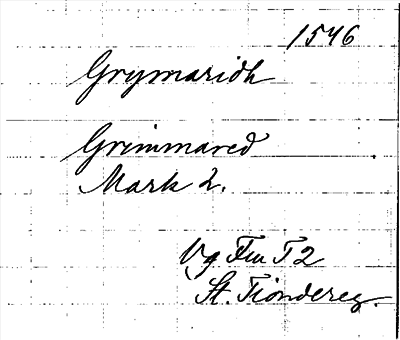 1546
Grymaridh
Grimmared
Mark 2.
Vg Fra T 2
St. Tiondereg.